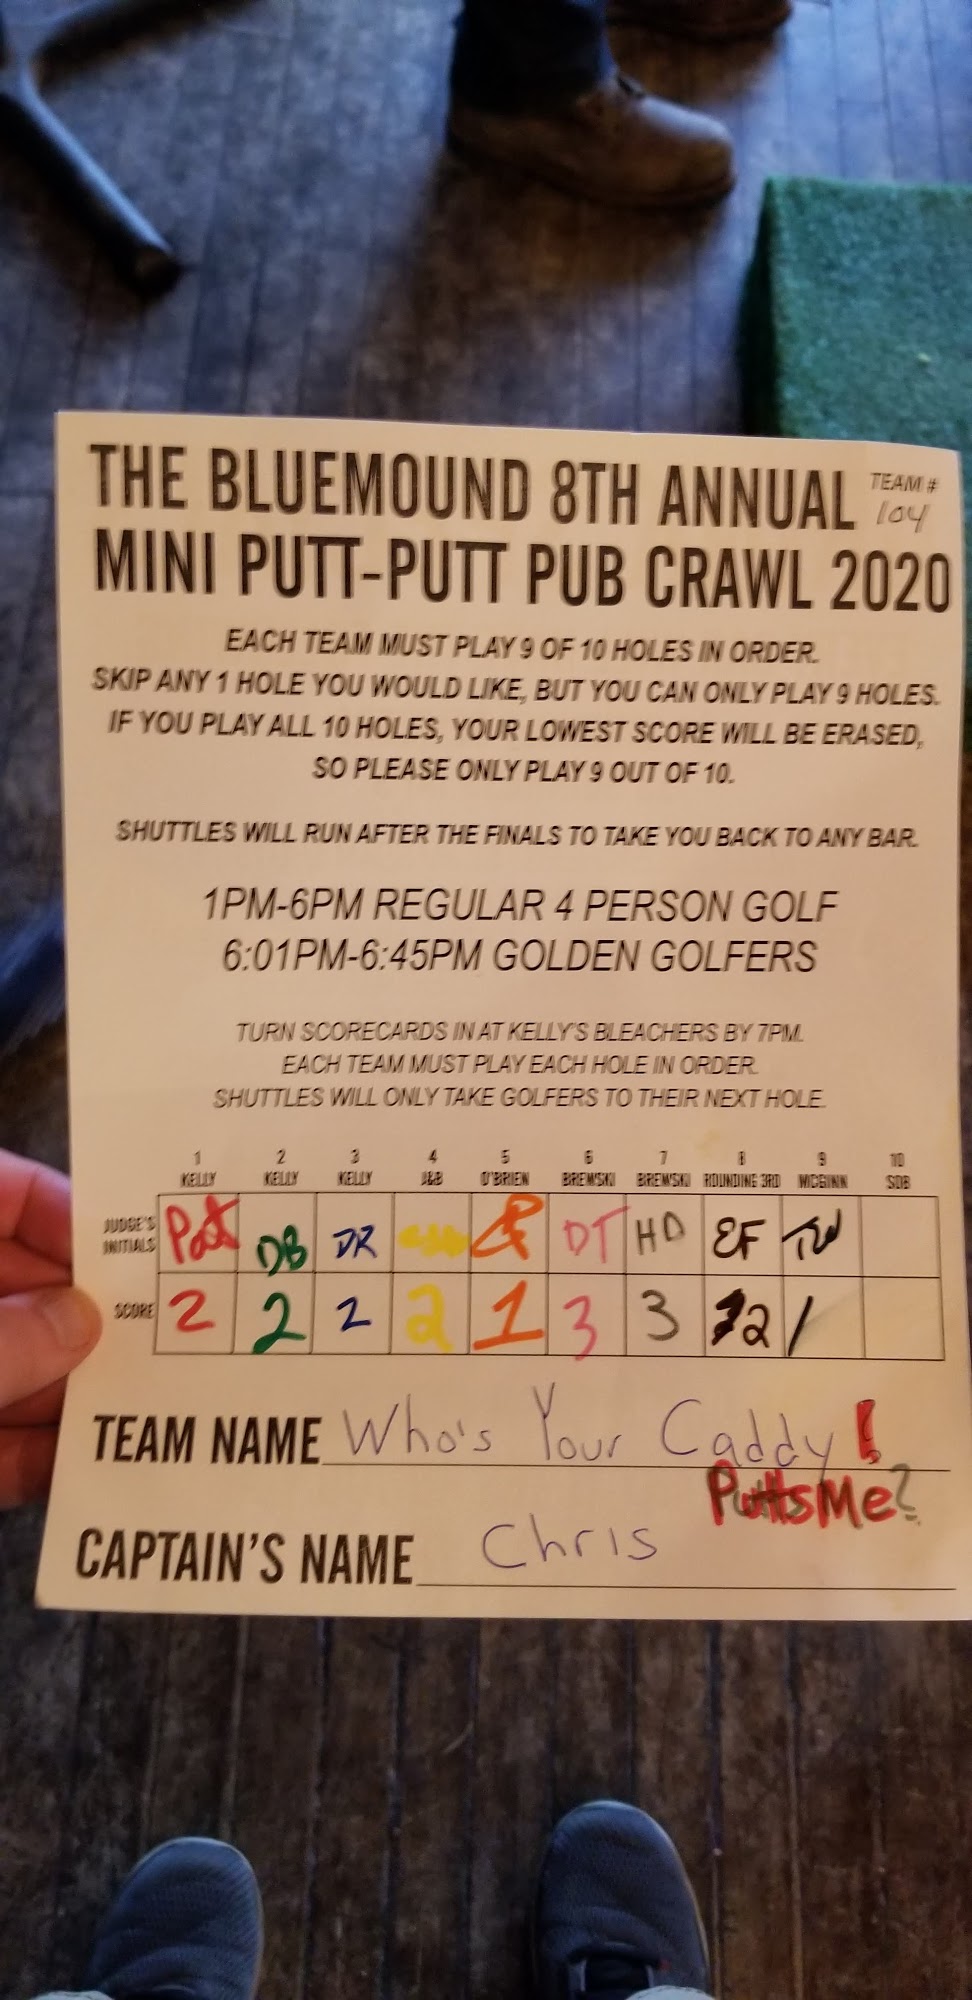 THE BLUEMOUND 8TH ANNUAL TEAM #
104
MINI PUTT-PUTT PUB CRAWL 2020
EACH TEAM MUST PLAY 9 OF 10 HOLES IN ORDER.
SKIP ANY 1 HOLE YOU WOULD LIKE, BUT YOU CAN ONLY PLAY 9 HOLES.
IF YOU PLAY ALL 10 HOLES, YOUR LOWEST SCORE WILL BE ERASED,
SO PLEASE ONLY PLAY 9 OUT OF 10.
SHUTTLES WILL RUN AFTER THE FINALS TO TAKE YOU BACK TO ANY BAR.
1PM-6PM REGULAR 4 PERSON GOLF
6:01PM-6:45PM GOLDEN GOLFERS
TURN SCORECARDS IN AT KELLY'S BLEACHERS BY 7PM.
EACH TEAM MUST PLAY EACH HOLE IN ORDER.
SHUTTLES WILL ONLY TAKE GOLFERS TO THEIR NEXT HOLE.
1 2 3 4 5 6 7 8 9 10
KELLY KELLY KELLY J&B O'BRIEN BREWSKI BREWSKI ROUNDING 3RD MCGINN SOB
JUDGE'S INITIALS Pat DB DR DT HD EF TW
SCORE 2 2 2 2 1 3 3 2 1
TEAM NAME Who's Your Caddy!
PuttsMe?
CAPTAIN'S NAME Chris